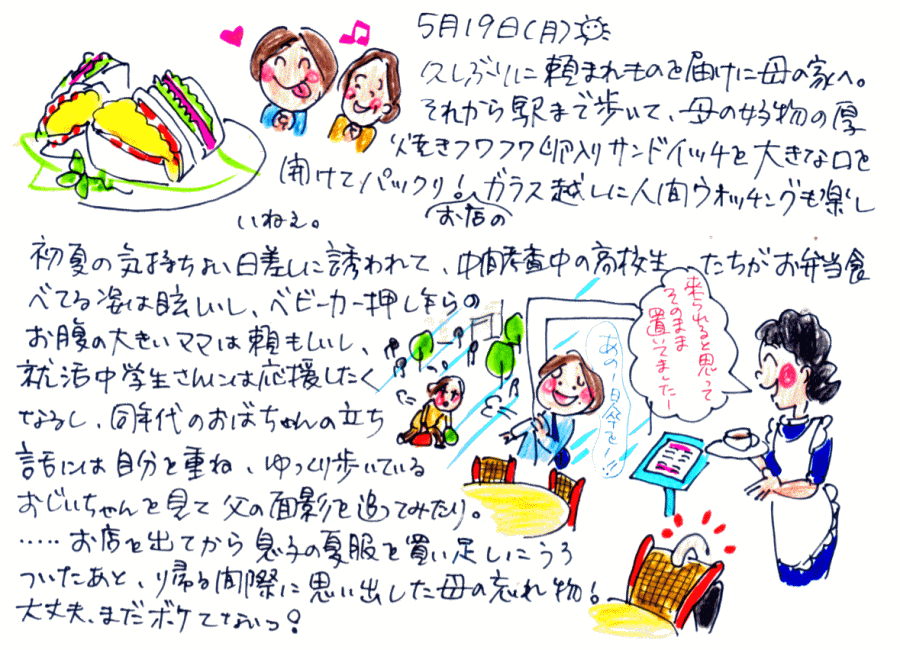 5月19日(月)
久しぶりに頼まれものを届けに母の家へ。
それから駅まで歩いて、母の好物の厚
焼きフワフワ卵入りサンドイッチを大きな口を
開けてパックリ!ガラス越しに人間ウォッチングも楽し
お店の
いねぇ。
初夏の気持ちよい日差しに誘われて、中間考査中の高校生たちがお弁当食
べてる姿は眩しいし、ベビーカー押しながらの
お腹の大きいママは頼もしいし、
就活中学生さんには応援したく
なるし、同年代のおばちゃんの立ち
話には自分を重ね、ゆっくり歩いている
おじいちゃんを見て父の面影を追ってみたり。
・・・・・お店を出てから息子の夏服を買い足しにうろ
ついたあと、帰る間際に思い出した母の忘れ物!
大丈夫、まだボケてないっ?
あの〜日傘を!!
来られると思って
そのまま
置いてました〜